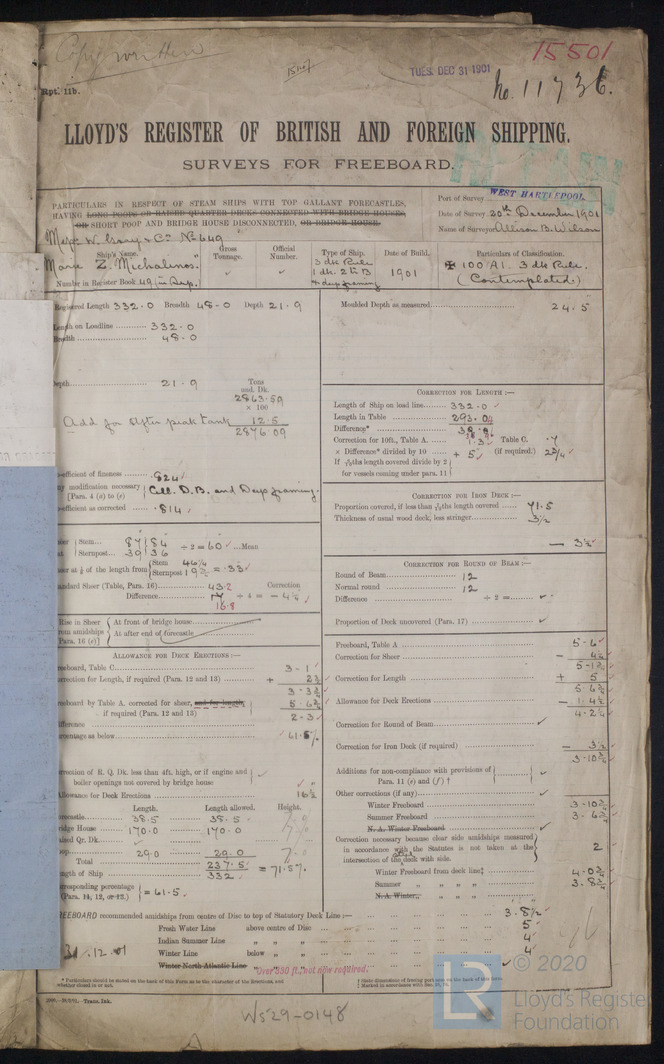 Copy written
15501
TUES. DEC 31 1901
No. 11736.
Rpt. 11b.
LLOYD'S REGISTER OF BRITISH AND FOREIGN SHIPPING.
SURVEYS FOR FREEBOARD.
PARTICULARS IN RESPECT OF STEAM SHIPS WITH TOP GALLANT FORECASTLES,
HAVING LONG POOPS OR RAISED QUARTER DECKS CONNECTED WITH BRIDGE HOUSES
OR SHORT POOP AND BRIDGE HOUSE DISCONNECTED, OR BRIDGE HOUSE.
Port of Survey WEST HARTLEPOOL
Date of Survey 20th December 1901
Name of Surveyor Allison B. Wilson
Messrs W. Gray & Co No 649
Ship's Name. Gross Tonnage. Official Number. Type of Ship. Date of Build. Particulars of Classification.
Marie Z. Michalinos.
3 dk Rule
1 dk. 2 tr B
+ deep framing
1901
✠ 100 A1. 3 dk Rule.
(Contemplated.)
Number in Register Book 49 in Sup.
Registered Length 332.0 Breadth 48.0 Depth 21.9
Moulded Depth as measured 24.5
Length on Loadline 332.0
Breadth 48.0
Depth 21.9
Tons und. Dk.
2863.59
× 100
Add for after peak tank 12.5
2876.09
CORRECTION FOR LENGTH:—
Length of Ship on load line 332.0
Length in Table 293.0
Difference*
Correction for 10ft., Table A. Table C. .7
× Difference* divided by 10 + 5 (if required:) 2 3/4
If 6/10ths length covered divide by 2
for vessels coming under para. 11
Co-efficient of fineness .824
Any modification necessary
[Para. 4 (a) to (e)
Cell. D.B. and Deep framing.
Co-efficient as corrected .814
CORRECTION FOR IRON DECK:—
Proportion covered, if less than 7/10ths length covered 71.5
Thickness of usual wood deck, less stringer 3 1/2
— 3 1/2
Stem 87 | 84
Sternpost 39 | 36 ÷ 2 = 60 Mean
Sheer at 1/8 of the length from Stem 46 3/4
Sternpost 19 3/4 = .33
Standard Sheer (Table, Para. 16) 43.2 Correction
Difference 17 ÷ 4 = — 4 1/4
16.8
CORRECTION FOR ROUND OF BEAM:—
Round of Beam 12
Normal round 12
Difference ÷ 2 =
Proportion of Deck uncovered (Para. 17)
Rise in Sheer
from amidships
[Para. 16 (e)]
At front of bridge house
At after end of forecastle
ALLOWANCE FOR DECK ERECTIONS:—
Freeboard, Table C 3 - 1
Correction for Length, if required (Para. 12 and 13) + 2 3/4
3 - 3 3/4
Freeboard by Table A. corrected for sheer, and for length,
if required (Para. 12 and 13) 5 - 6 3/4
Difference 2 - 3
Percentage as below 61.5%
Correction of R. Q. Dk. less than 4ft. high, or if engine and
boiler openings not covered by bridge house
Allowance for Deck Erections 16 1/2
Freeboard, Table A 5 - 6
Correction for Sheer — 4 1/4
5 - 1 3/4
Correction for Length + 5
5 - 6 3/4
Allowance for Deck Erections — 1 - 4 1/2
4 - 2 1/4
Correction for Round of Beam
Correction for Iron Deck (if required) — 3 1/2
3 - 10 3/4
Additions for non-compliance with provisions of
Para. 11 (e) and (f) †
Other corrections (if any)
Winter Freeboard 3 - 10 3/4
Summer Freeboard 3 - 6 3/4
N. A. Winter Freeboard
Length. Length allowed. Height.
Forecastle 38.5 38.5
Bridge House 170.0 170.0
Raised Qr. Dk.
Poop 29.0 29.0
Total 237.5
Length of Ship 332 = 71.5%
Corresponding percentage
(Para. 11, 12, or 12.) = 61.5
Correction necessary because clear side amidships measured
in accordance with the Statutes is not taken at the
intersection of the deck with side. 2
Winter Freeboard from deck line‡ 4 - 0 3/4
Summer „ „ „ „ 3 - 8 3/4
N. A. Winter „ „ „ „
FREEBOARD recommended amidships from centre of Disc to top of Statutory Deck Line:— 3 - 8 1/2
Fresh Water Line above centre of Disc 5
Indian Summer Line „ „ „ 4
Winter Line below „ „ 4
Winter North Atlantic Line „ „
31.12.01
"Over 330 ft., not now required.
* Particulars should be stated on the back of this Form as to the character of the Erections, and
whether closed in or not.
2000.—20/2/01. Trans. Ink.
WS29-0148
LR
© 2020
Lloyd's Register
Foundation